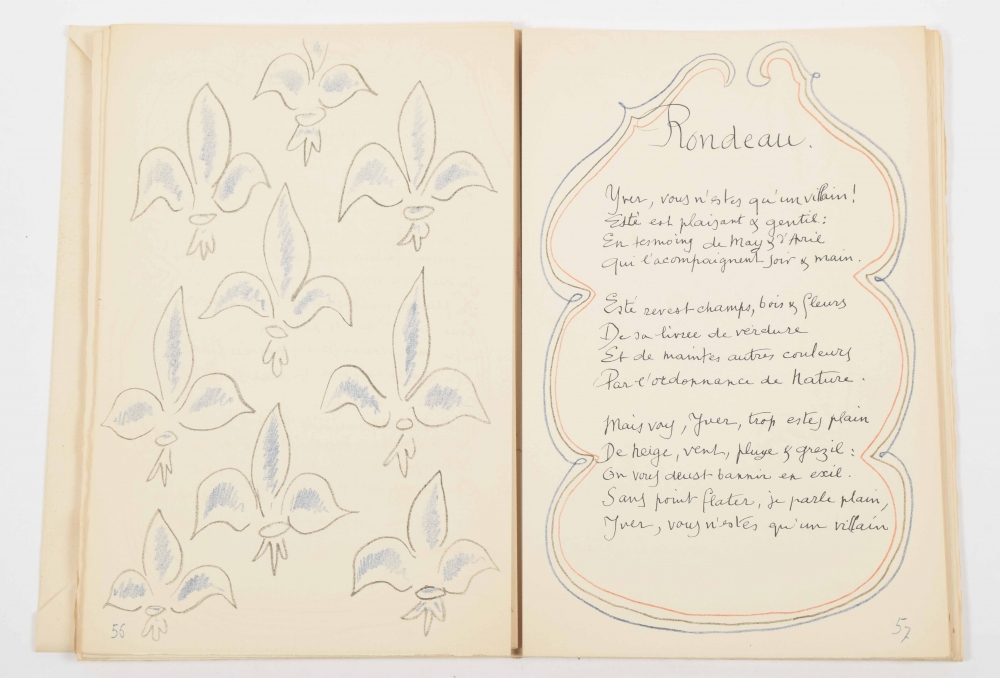 56
Rondeau.
Yver, vous n'estes qu'un villain !
Esté est plaisant & gentil :
En tesmoing de May & d'Avril
Qui l'acompaignent soir & main.
Esté revest champs, bois & fleurs
De sa livree de verdure
Et de maintes autres couleurs
Par l'ordonnance de Nature.
Mais voy, Yver, trop estes plain
De neige, vent, pluye & grezil :
On vous deust bannir en exil.
Sans point flater, je parle plain,
Yver, vous n'estes qu'un villain
57